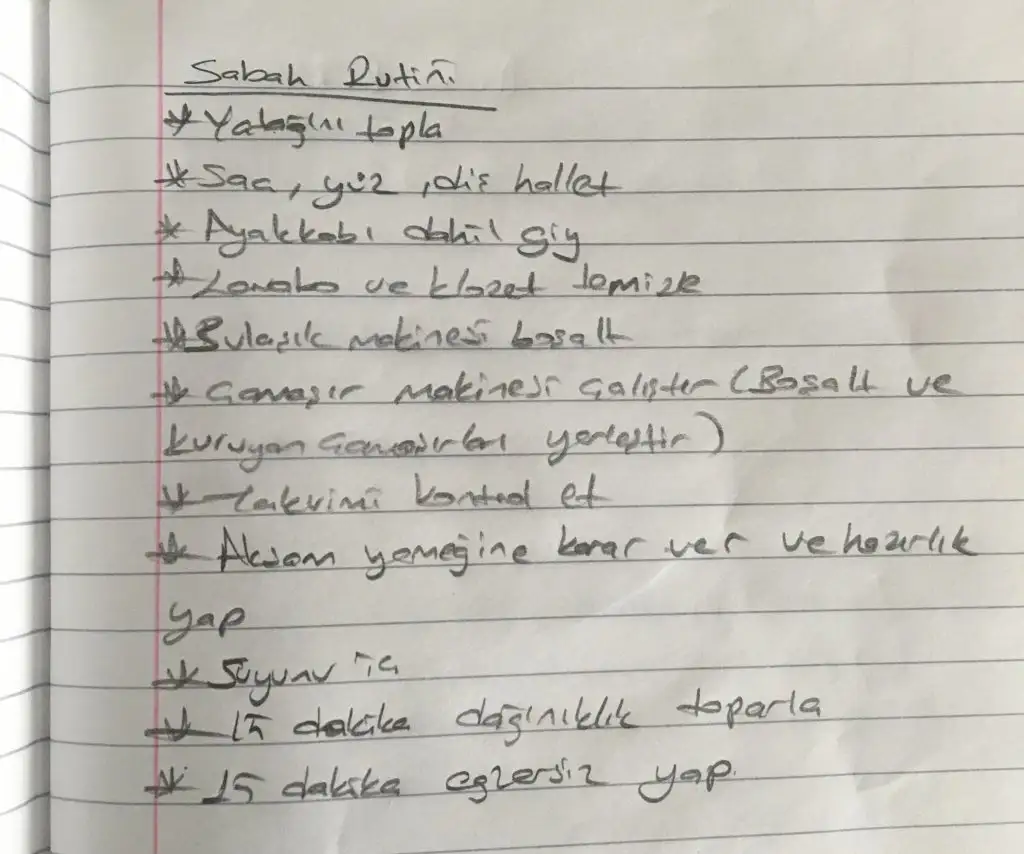 Sabah Rutini
* Yatağını topla
* Saç, yüz, diş hallet
* Ayakkabı dahil giy
* Lavabo ve klozet temizle
* Bulaşık makinesi boşalt
* Çamaşır makinesi çalıştır (Boşalt ve
kuruyan çamaşırları yerleştir)
* Takvimi kontrol et
* Akşam yemeğine karar ver ve hazırlık
yap
* Suyunu iç
* 15 dakika dağınıklık toparla
* 15 dakika egzersiz yap.